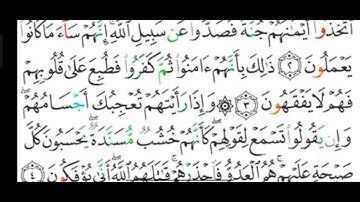 ٱتَّخَذُوٓا۟ أَيْمَٰنَهُمْ جُنَّةً فَصَدُّوا۟ عَن سَبِيلِ ٱللَّهِ ۚ إِنَّهُمْ سَآءَ مَا كَانُوا۟
يَعْمَلُونَ ٢ ذَٰلِكَ بِأَنَّهُمْ ءَامَنُوا۟ ثُمَّ كَفَرُوا۟ فَطُبِعَ عَلَىٰ قُلُوبِهِمْ
فَهُمْ لَا يَفْقَهُونَ ٣ ۞ وَإِذَا رَأَيْتَهُمْ تُعْجِبُكَ أَجْسَامُهُمْ ۖ
وَإِن يَقُولُوا۟ تَسْمَعْ لِقَوْلِهِمْ ۖ كَأَنَّهُمْ خُشُبٌ مُّسَنَّدَةٌ ۖ يَحْسَبُونَ كُلَّ
صَيْحَةٍ عَلَيْهِمْ ۚ هُمُ ٱلْعَدُوُّ فَٱحْذَرْهُمْ ۚ قَٰتَلَهُمُ ٱللَّهُ ۖ أَنَّىٰ يُؤْفَكُونَ ٤